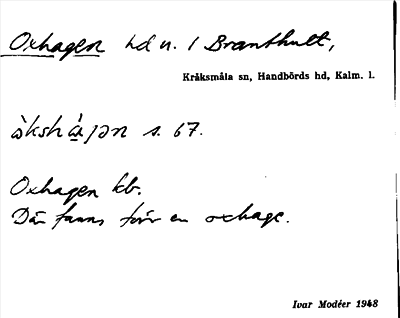 Oxhagen hd n. 1 Branthult,
Kråksmåla sn, Handbörds hd, Kalm. l.
s. 67.
Oxhagen kb.
Där fanns förr en oxhage.
Ivar Modéer 1948